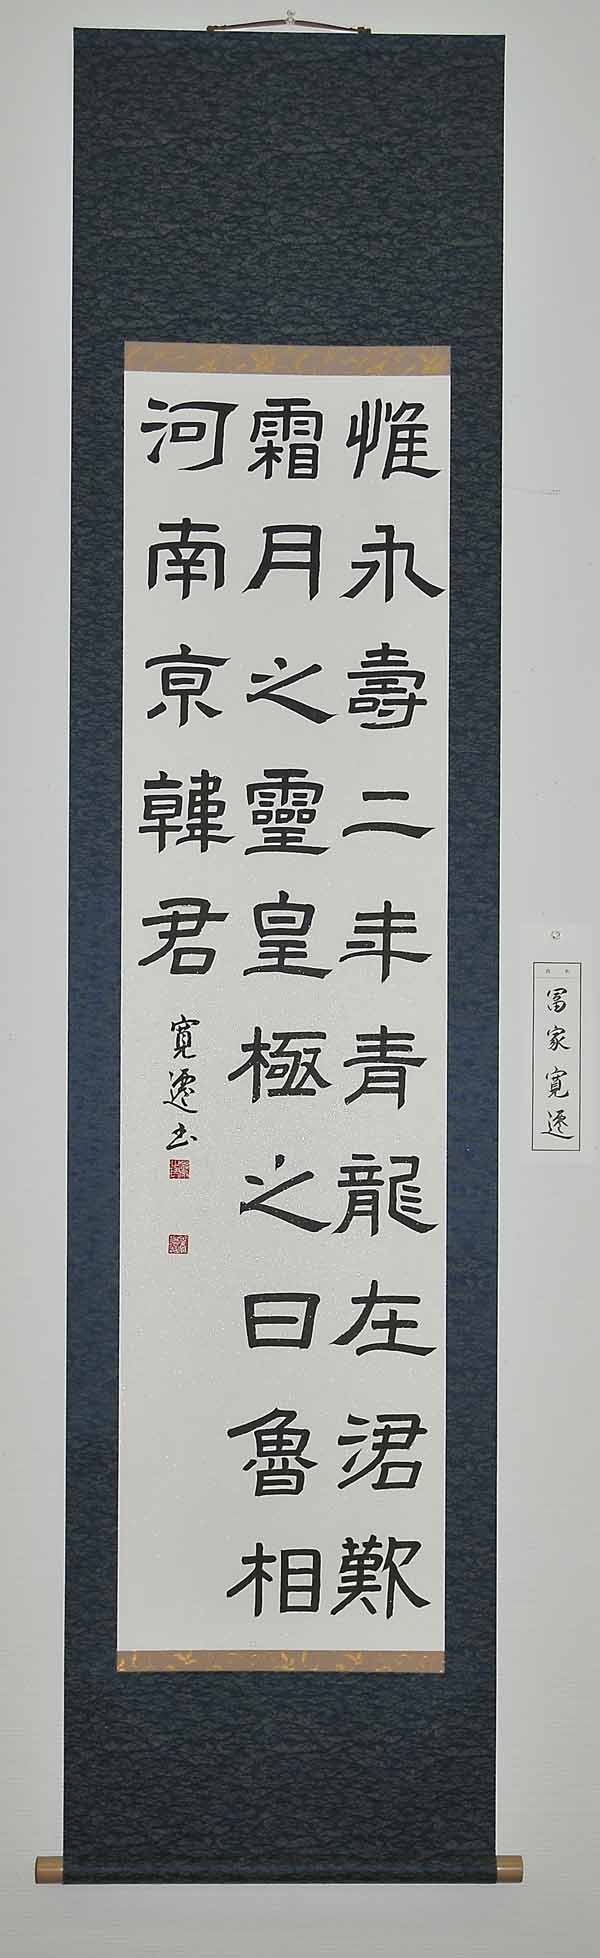 惟永壽二年青龍在涒歎
霜月之靈皇極之日魯相
河南京韓君
寛遷书
冨家寛遷